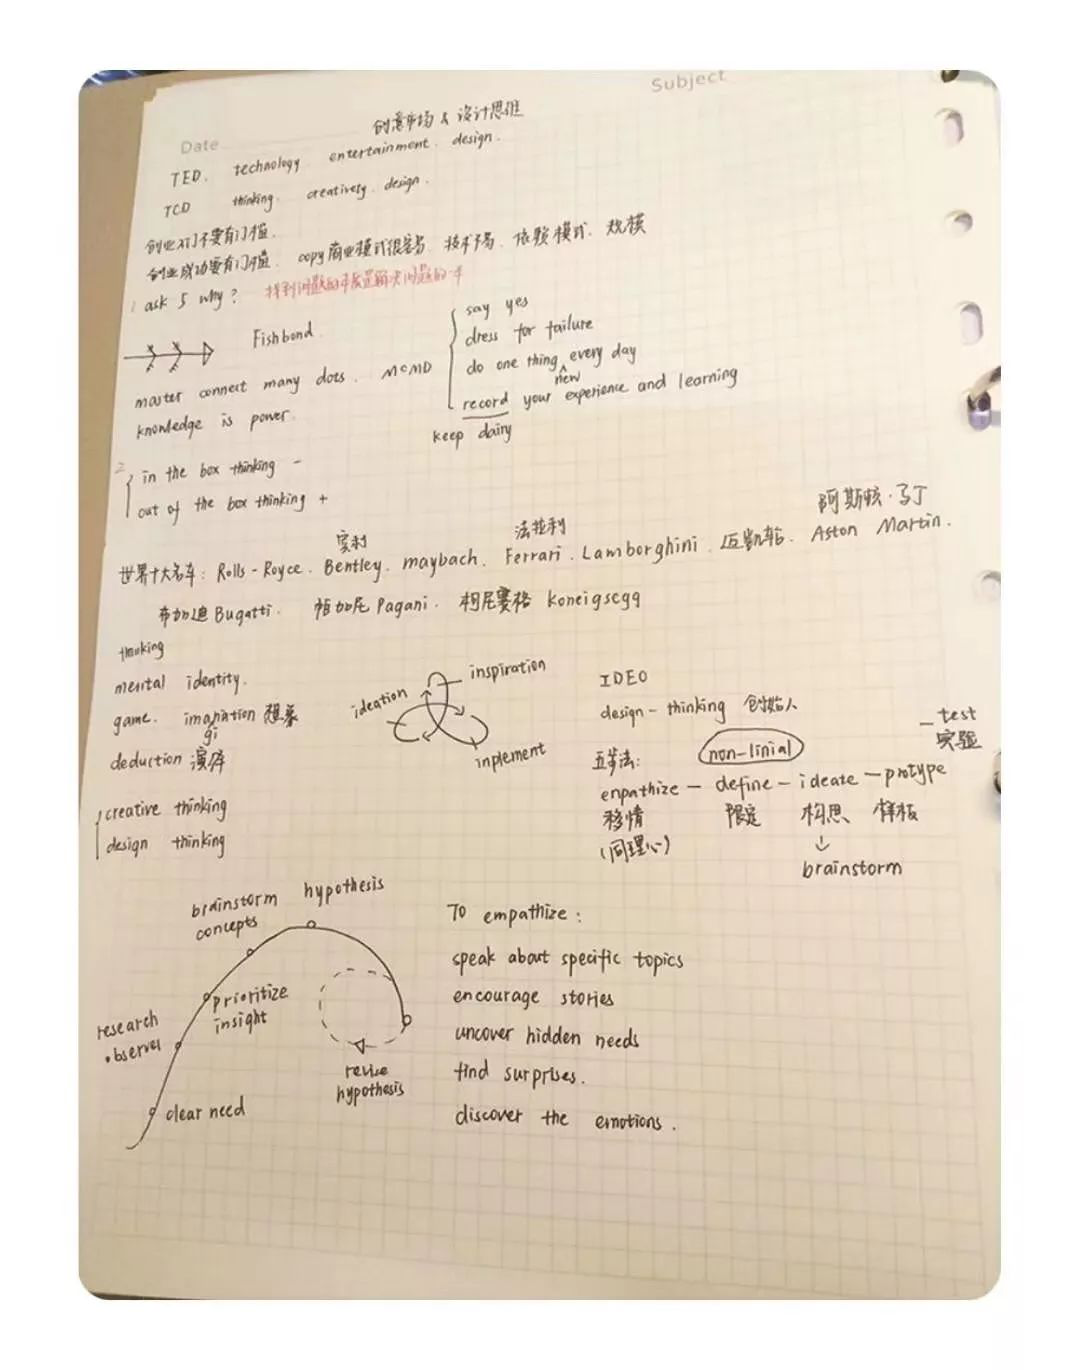 Subject
Date
创意市场 & 设计思维
TED. technology. entertainment. design.
TCD thinking. creatively. design.
创业入门不要有门槛.
创业成功要有门槛. copy商业模式很容易. 技术 依赖模式. 规模
1 ask 5 why? 找到问题的本质是解决问题的一半
Fishbond.
master connect many dots. MCMD
knowledge is power.
say yes
dress for failure
do one thing every day
new
record your experience and learning
keep dairy
2 in the box thinking -
out of the box thinking +
宾利 法拉利 阿斯顿·马丁
世界十大名车: Rolls-Royce. Bentley. maybach. Ferrari. Lamborghini. 迈凯轮. Aston Martin.
布加迪 Bugatti. 帕加尼 Pagani. 柯尼赛格 Koneigsegg
thinking
mental identity.
game. imanination 想象
gi
deduction 演绎
creative thinking
design thinking
inspiration
ideation
inplement
IDEO
design-thinking 创始人
五步法: non-linial
enpathize - define - ideate - protype
- test
实验
移情 限定 构思 样板
(同理心)
brainstorm
brainstorm
concepts
hypothesis
prioritize
insight
research
observer
clear need
revise
hypothesis
To empathize:
speak about specific topics
encourage stories
uncover hidden needs
find surprises.
discover the emotions.